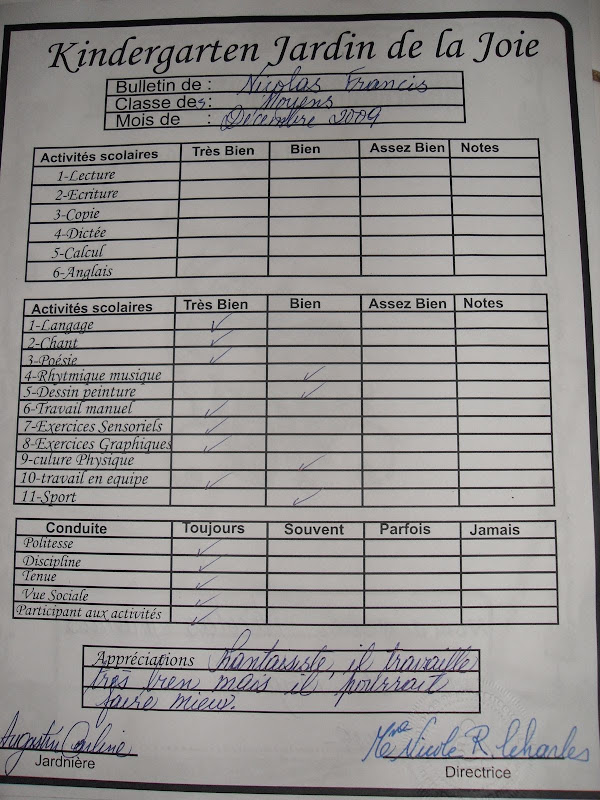 Kindergarten Jardin de la Joie
Bulletin de : Nicolas Francis
Classe des: Moyens
Mois de : Décembre 2009
Activités scolaires Très Bien Bien Assez Bien Notes
1-Lecture
2-Ecriture
3-Copie
4-Dictée
5-Calcul
6-Anglais
Activités scolaires Très Bien Bien Assez Bien Notes
1-Langage ✓
2-Chant ✓
3-Poésie ✓
4-Rhytmique musique ✓
5-Dessin peinture ✓
6-Travail manuel ✓
7-Exercices Sensoriels ✓
8-Exercices Graphiques ✓
9-culure Physique ✓
10-travail en equipe ✓
11-Sport ✓
Conduite Toujours Souvent Parfois Jamais
Politesse ✓
Discipline ✓
Tenue ✓
Vue Sociale ✓
Participant aux activités ✓
Appréciations Fantaisiste, il travaille
très bien mais il pourrait
faire mieux.
Augustin Carline Mme Nicole R Lcharles
Jardnière
Directrice